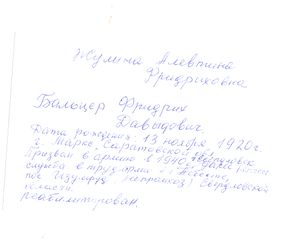 Жулина Алевтина
Фридриховна
Бальцер Фридрих
Давыдович.
Дата рождения: 13 ноября 1920г.
г. Маркс, Саратовской
Призван в армию в 1940г.
служба в трудармии
пос. Изумруд Свердловской
области.
реабилитирован